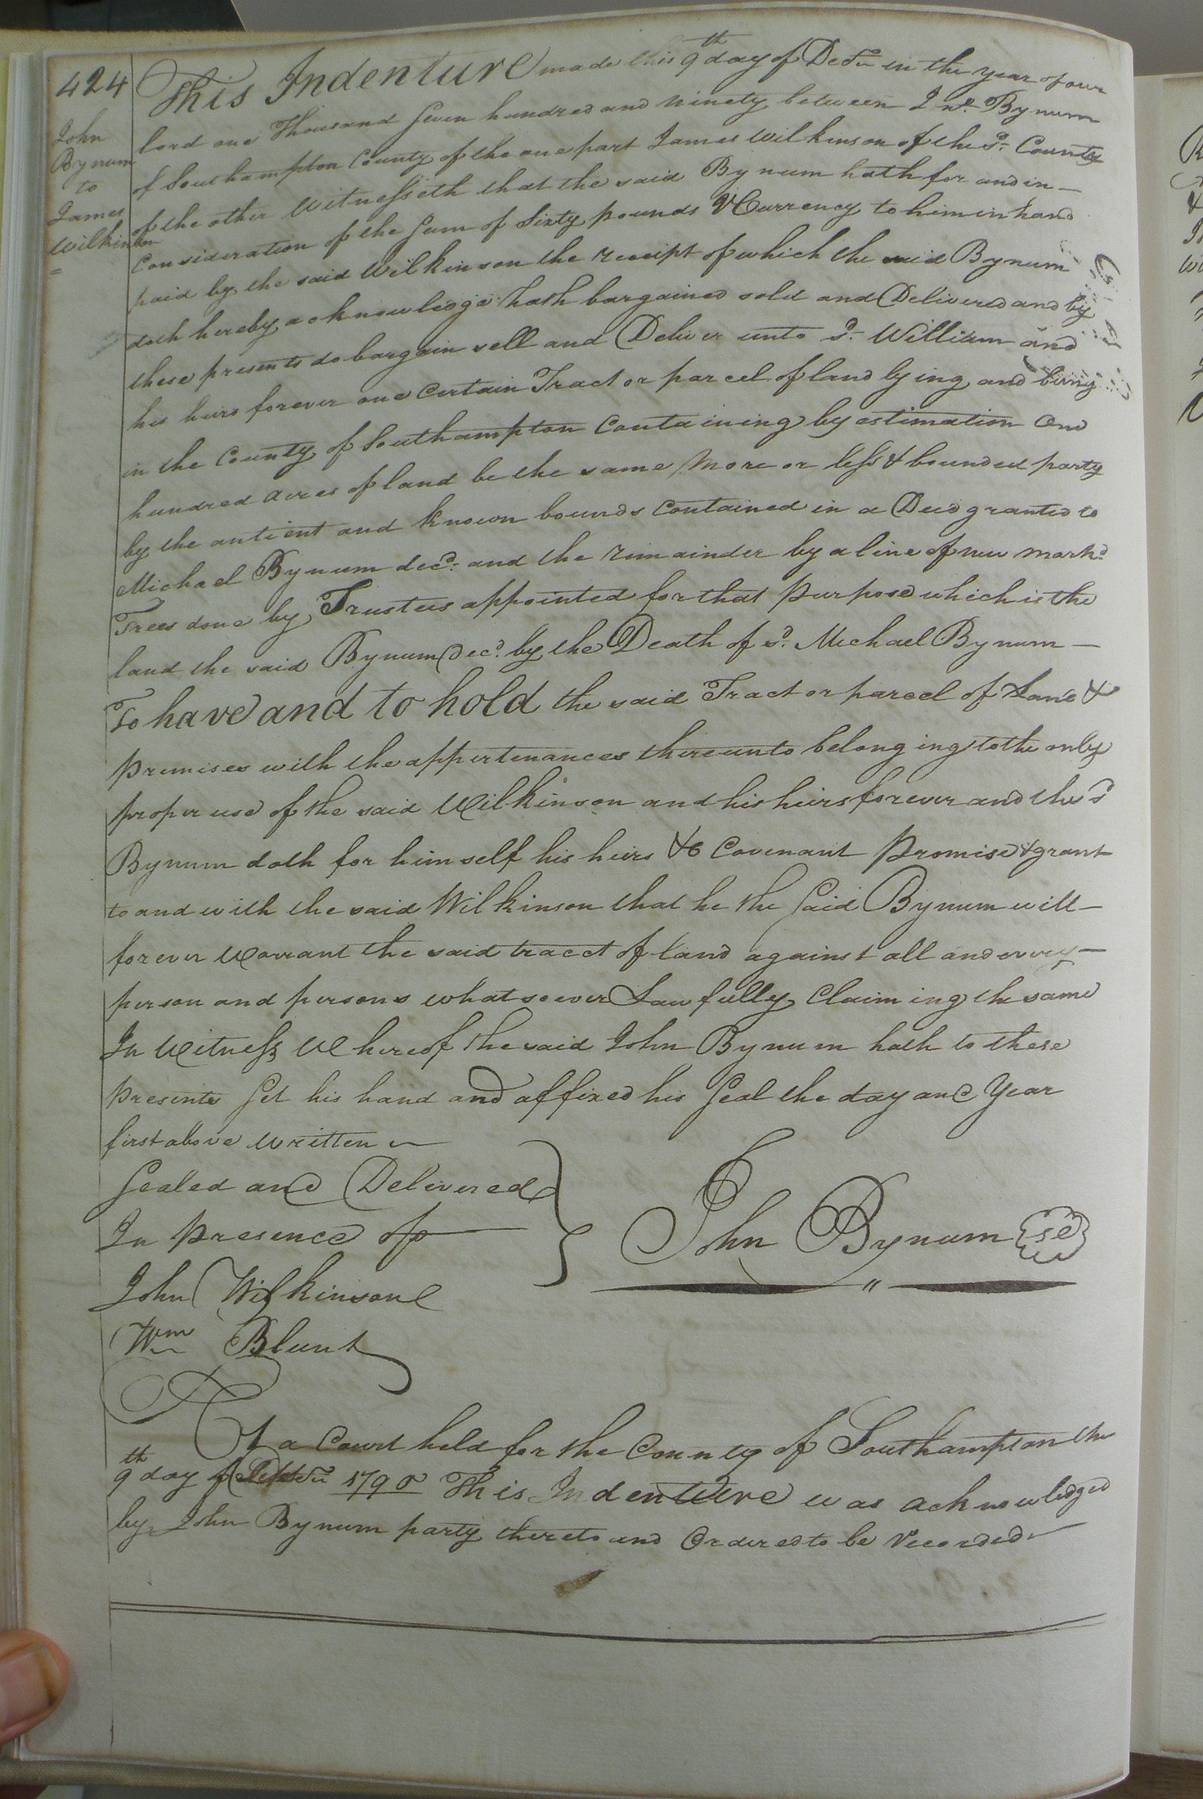 424
John
Bynum
to
James
Wilkinson
This Indenture made this 9th day of Decr in the year of our
lord one Thousand Seven hundred and ninety between Jno. Bynum
of Southampton County of the one part James Wilkinson of the sd. County
of the other Witnesseth that the said Bynum hath for and in —
Consideration of the Sum of Sixty pounds V Currency to him in hand
paid by the said Wilkinson the receipt of which the said Bynum
doth hereby acknowledge hath bargained sold and Delivered and by
these presents do bargain sell and Deliver unto sd. William and
his heirs forever one certain Tract or parcel of land lying and being
in the County of Southampton Containing by estimation One
hundred acres of land be the same more or less & bounded party
by the antient and known bounds contained in a Deed granted to
Michael Bynum decd. and the remainder by a line of new markd.
Trees done by Trustees appointed for that purpose which is the
land the said Bynum decd. by the Death of sd. Michael Bynum —
To have and to hold the said Tract or parcel of Land &
premises with the appertenances thereunto belonging to the only
proper use of the said Wilkinson and his heirs forever and the sd
Bynum doth for himself his heirs &c Covenant Promise & grant
to and with the said Wilkinson that he the Said Bynum will —
forever Warrant the said tracct of land against all and every —
person and persons whatsoever Lawfully Claiming the same
In Witness Whereof the said John Bynum hath to these
presents Set his hand and affixed his Seal the day and Year
first above written
Sealed and Delivered
In presence of
John Bynum se
John Wilkinson
Wm Blunt
At a Court held for the County of Southampton the
9th day of 1790 This Indenture was acknowledged
by John Bynum party thereto and Ordered to be recorded